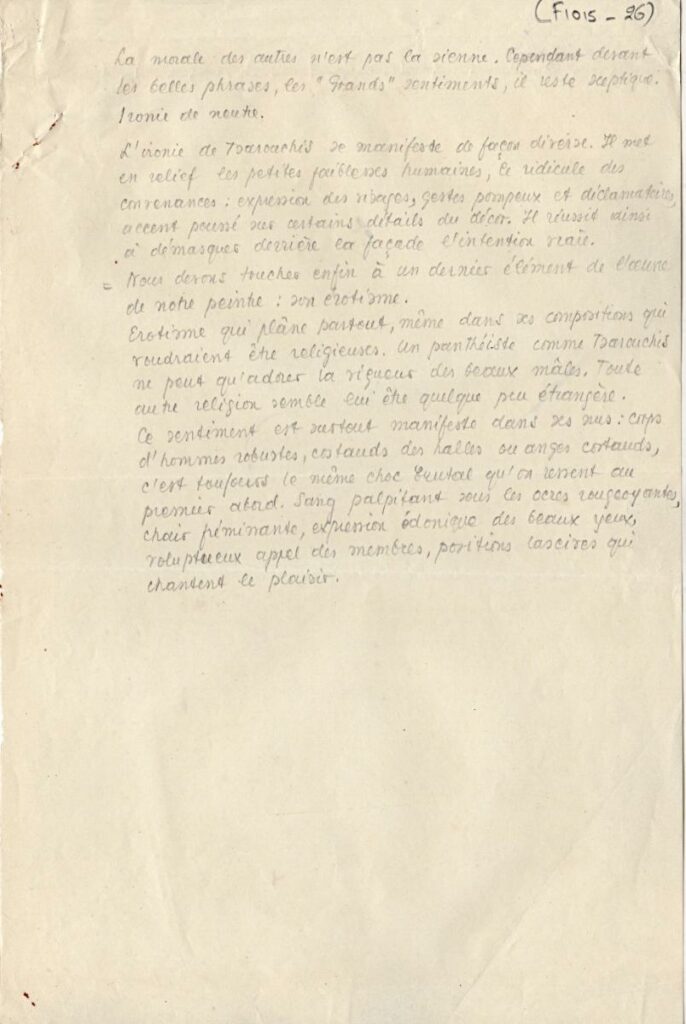 (F1015 - 26)
La morale des autres n'est pas la sienne. Cependant devant
les belles phrases, les "Grands" sentiments, il reste sceptique.
Ironie de neutre.
L'ironie de Tsarouchis se manifeste de façon diverse. Il met
en relief les petites faiblesses humaines, le ridicule des
convenances : expression des visages, gestes pompeux et déclamatoires,
accent poussé sur certains détails du décor. Il réussit ainsi
à démasquer derrière la façade l'intention vraie.
= Nous devons toucher enfin à un dernier élément de l'œuvre
de notre peintre : son érotisme.
Erotisme qui plâne partout, même dans ses compositions qui
voudraient être religieuses. Un panthéiste comme Tsarouchis
ne peut qu'adorer la vigueur des beaux mâles. Toute
autre religion semble lui être quelque peu étrangère.
Ce sentiment est surtout manifeste dans ses nus : corps
d'hommes robustes, costauds des halles ou anges costauds,
c'est toujours le même choc brutal qu'on ressent au
premier abord. Sang palpitant sous les ocres rougeoyantes,
chair fréminante, expression édonique des beaux yeux,
voluptueux appel des membres, positions lascives qui
chantent le plaisir.